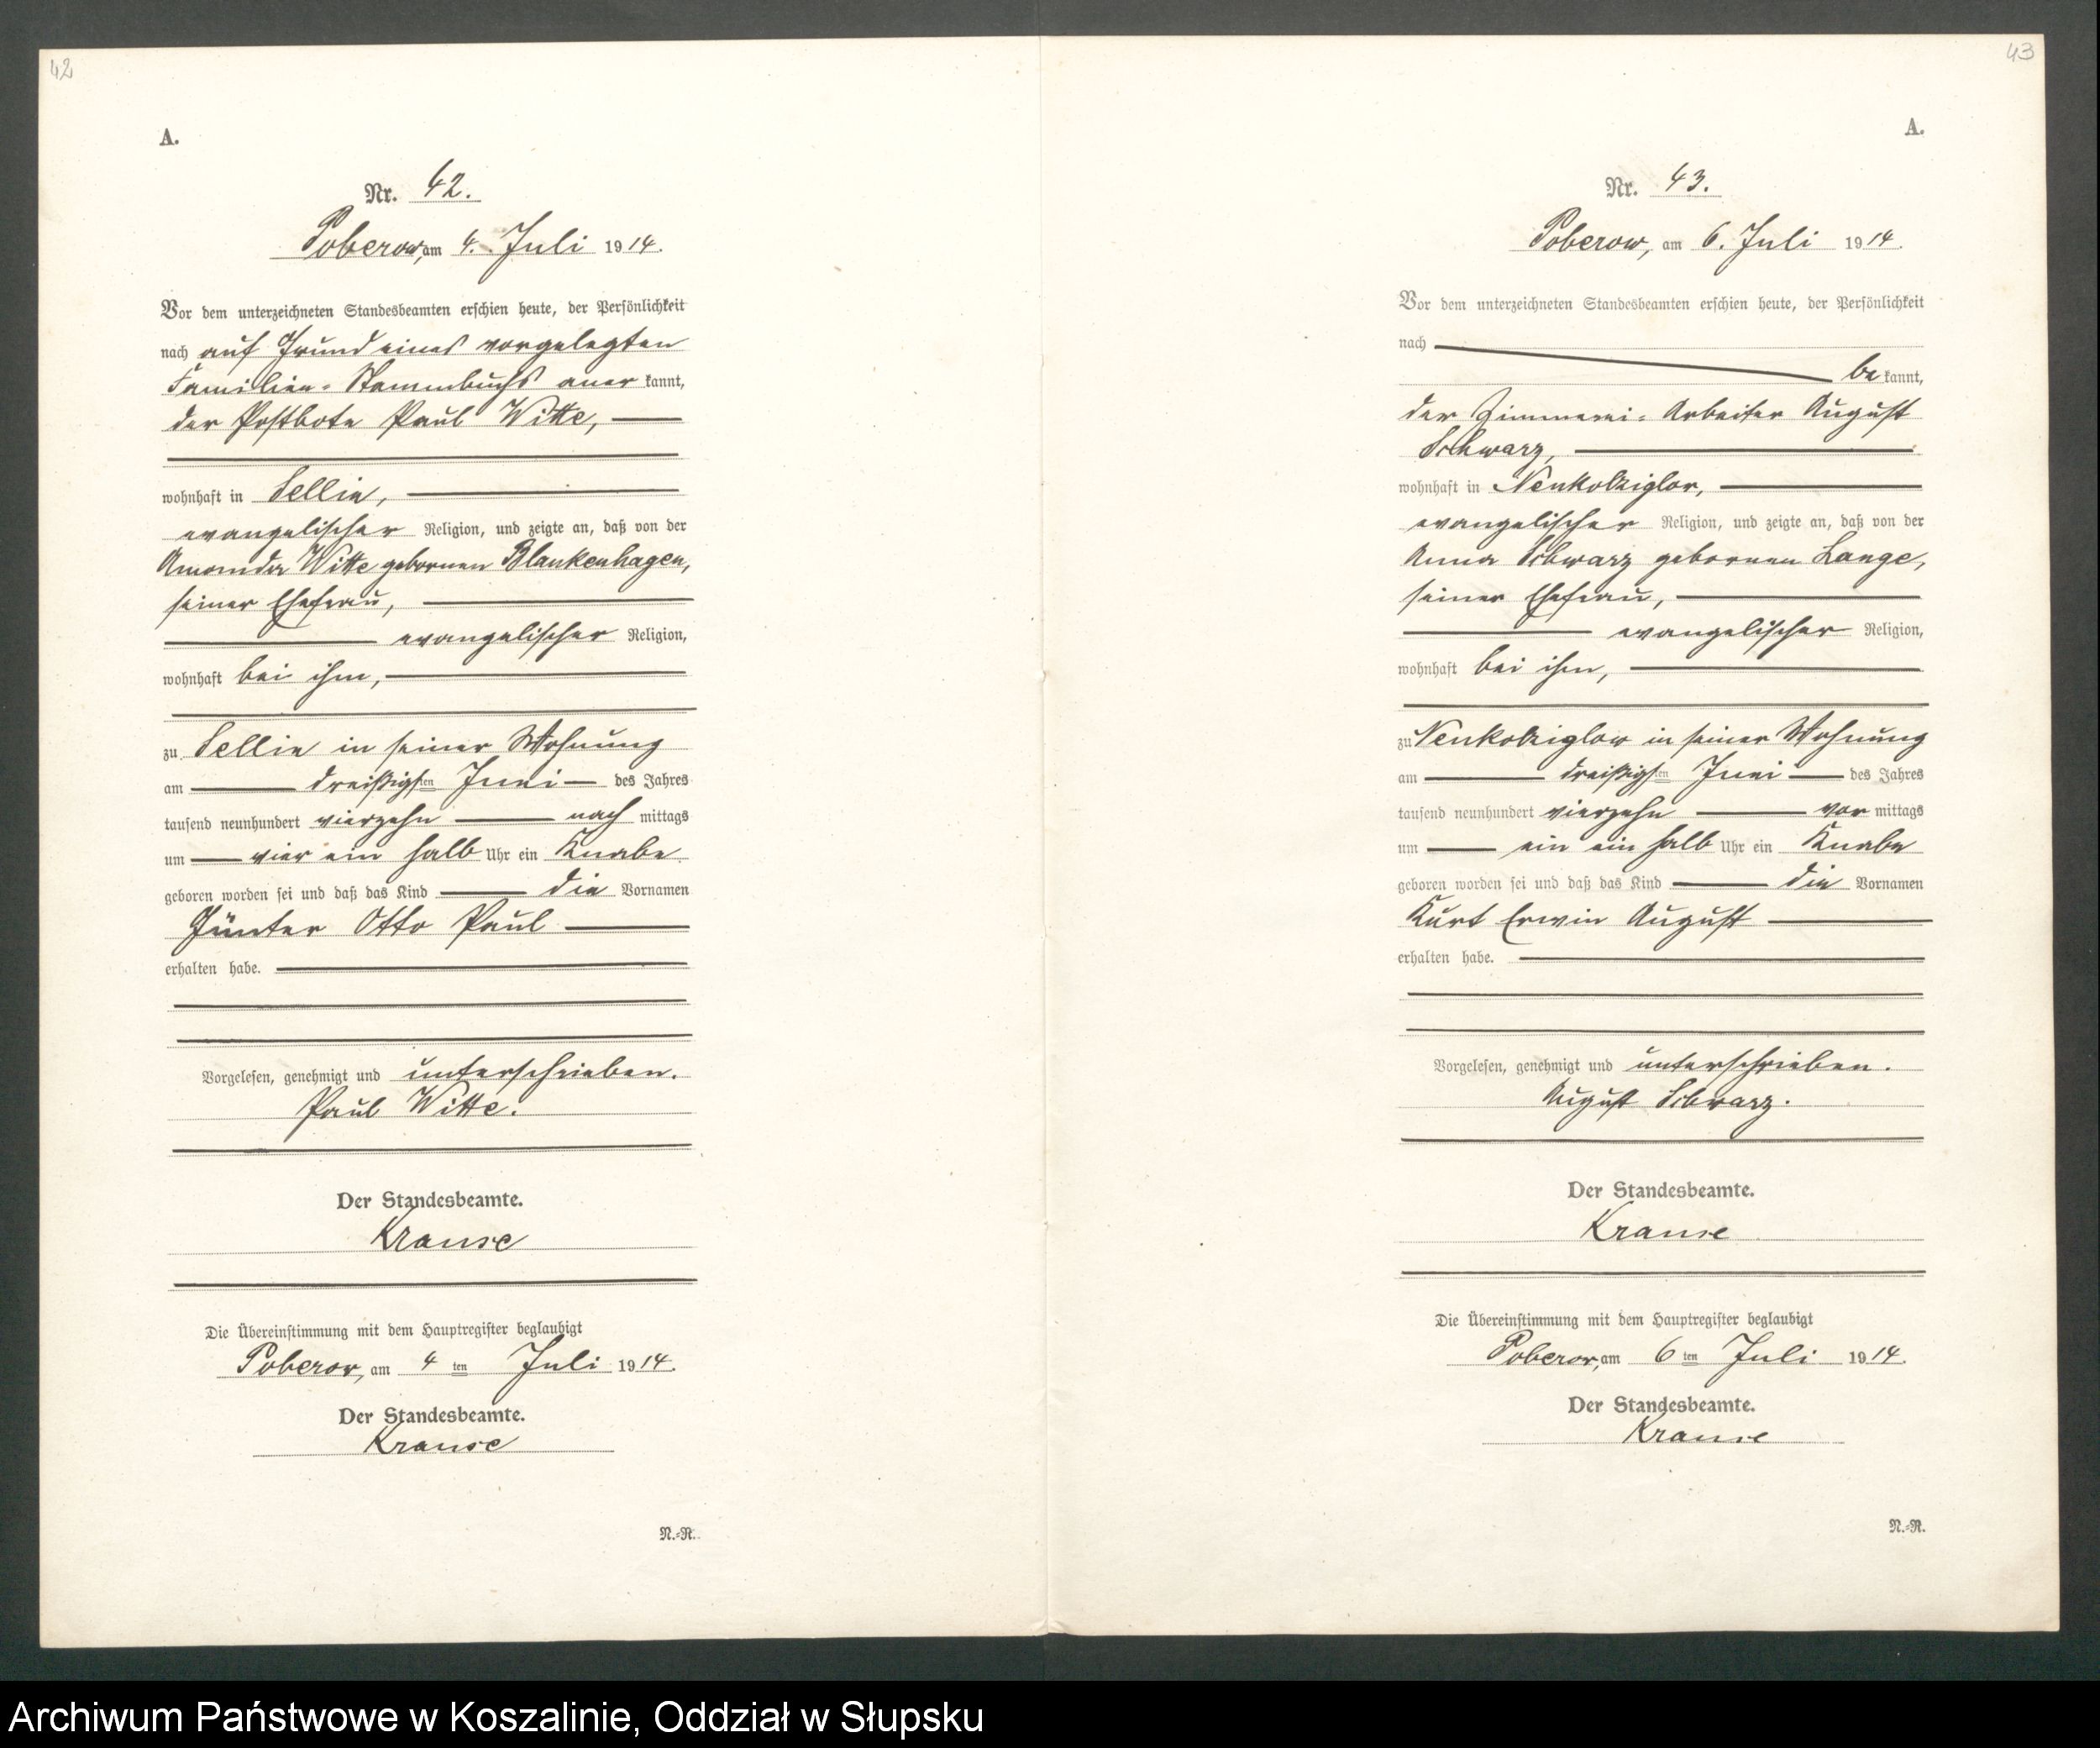 42
A.
Nr. 42.
Poberow, am 4. Juli 1914.
Vor dem unterzeichneten Standesbeamten erschien heute, der Persönlichkeit
nach auf Grund eines vorgelegten
Familien-Stammbuchs anerkannt,
der Postbote Paul Witte,
wohnhaft in Sellin,
evangelischer Religion, und zeigte an, daß von der
Amanda Witte gebornen Blankenhagen,
seiner Ehefrau,
evangelischer Religion,
wohnhaft bei ihm,
zu Sellin in seiner Wohnung
am dreißigsten Juni des Jahres
tausend neunhundert vierzehn nachmittags
um vier ein halb Uhr ein Knabe
geboren worden sei und daß das Kind die Vornamen
Günter Otto Paul
erhalten habe.
Vorgelesen, genehmigt und unterschrieben.
Paul Witte.
Der Standesbeamte.
Krause
Die Übereinstimmung mit dem Hauptregister beglaubigt
Poberow, am 4ten Juli 1914.
Der Standesbeamte.
Krause
N.-R.
43
A.
Nr. 43.
Poberow, am 6. Juli 1914.
Vor dem unterzeichneten Standesbeamten erschien heute, der Persönlichkeit
nach
bekannt,
der Zimmerei-Arbeiter August
Schwarz,
wohnhaft in Neukolziglow,
evangelischer Religion, und zeigte an, daß von der
Anna Schwarz gebornen Lange,
seiner Ehefrau,
evangelischer Religion,
wohnhaft bei ihm,
zu Neukolziglow in seiner Wohnung
am dreißigsten Juni des Jahres
tausend neunhundert vierzehn vormittags
um ein ein halb Uhr ein Knabe
geboren worden sei und daß das Kind die Vornamen
Kurt Erwin August
erhalten habe.
Vorgelesen, genehmigt und unterschrieben.
August Schwarz.
Der Standesbeamte.
Krause
Die Übereinstimmung mit dem Hauptregister beglaubigt
Poberow, am 6ten Juli 1914.
Der Standesbeamte.
Krause
N.-R.
Archiwum Państwowe w Koszalinie, Oddział w Słupsku